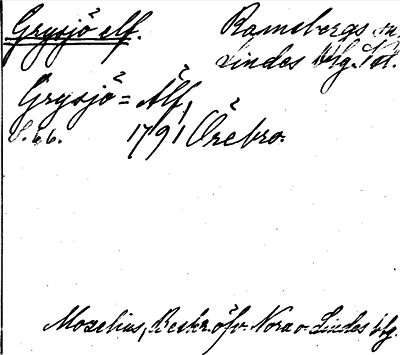 Grysjö elf. Ramsbergs sn,
Lindes blg.
Grysjö = Älf,
S. 66. 1791 Örebro.
Moxelius, Beskr. öfv. Nora o Lindes blg.